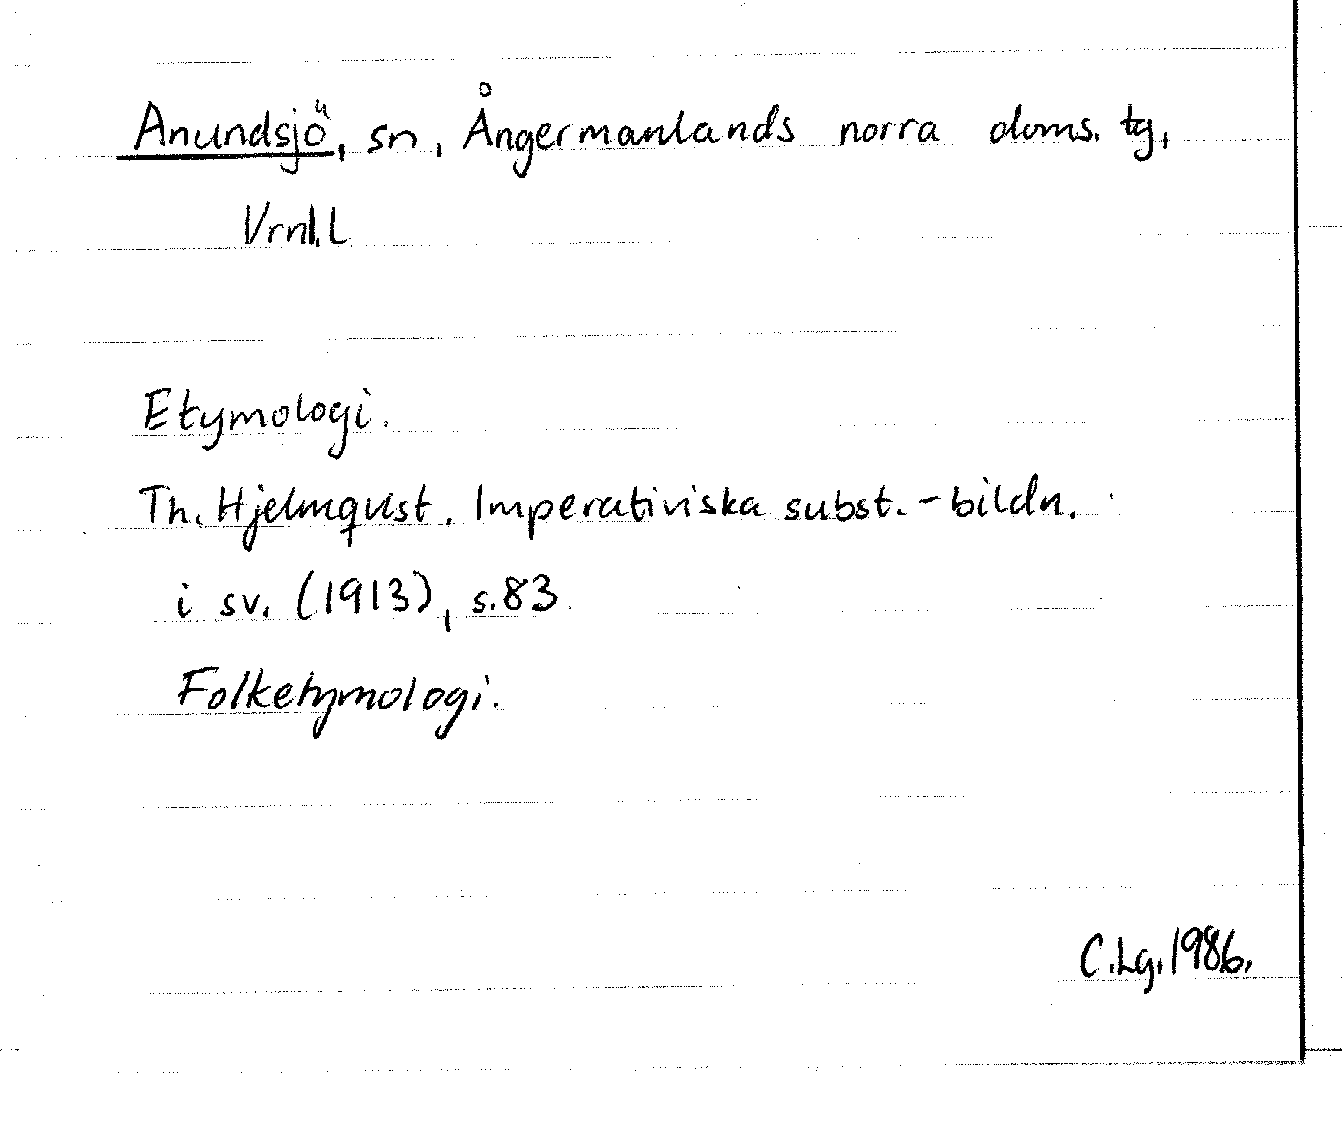 Anundsjö, sn, Ångermanlands norra doms. tg,
Vrnl. L
Etymologi.
Th. Hjelmqvist, Imperativiska subst.-bildn.
i sv. (1913), s.83
Folketymologi.
C.Lg. 1986.